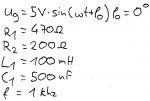 u₉ = 5V·sin(ωt+φ₀) φ₀ = 0°
R₁ = 470Ω
R₂ = 200Ω
L₁ = 100 mH
C₁ = 500 nF
f = 1 kHz